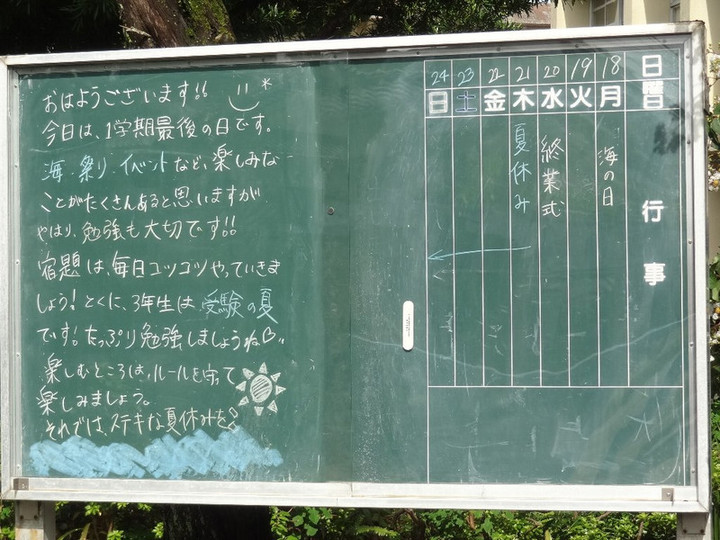 おはようございます!!
今日は、1学期最後の日です。
海・祭り・イベントなど、楽しみな
ことがたくさんあると思いますが
やはり、勉強も大切です!!
宿題は、毎日コツコツやっていきま
しょう!とくに、3年生は、受験の夏
です!たっぷり勉強しましょうね♡。
楽しむところは、ルールを守って
楽しみましょう。
それでは、ステキな夏休みを!
曜日 行事
18 月 海の日
19 火
20 水 終業式
21 木 夏休み
22 金
23 土
24 日